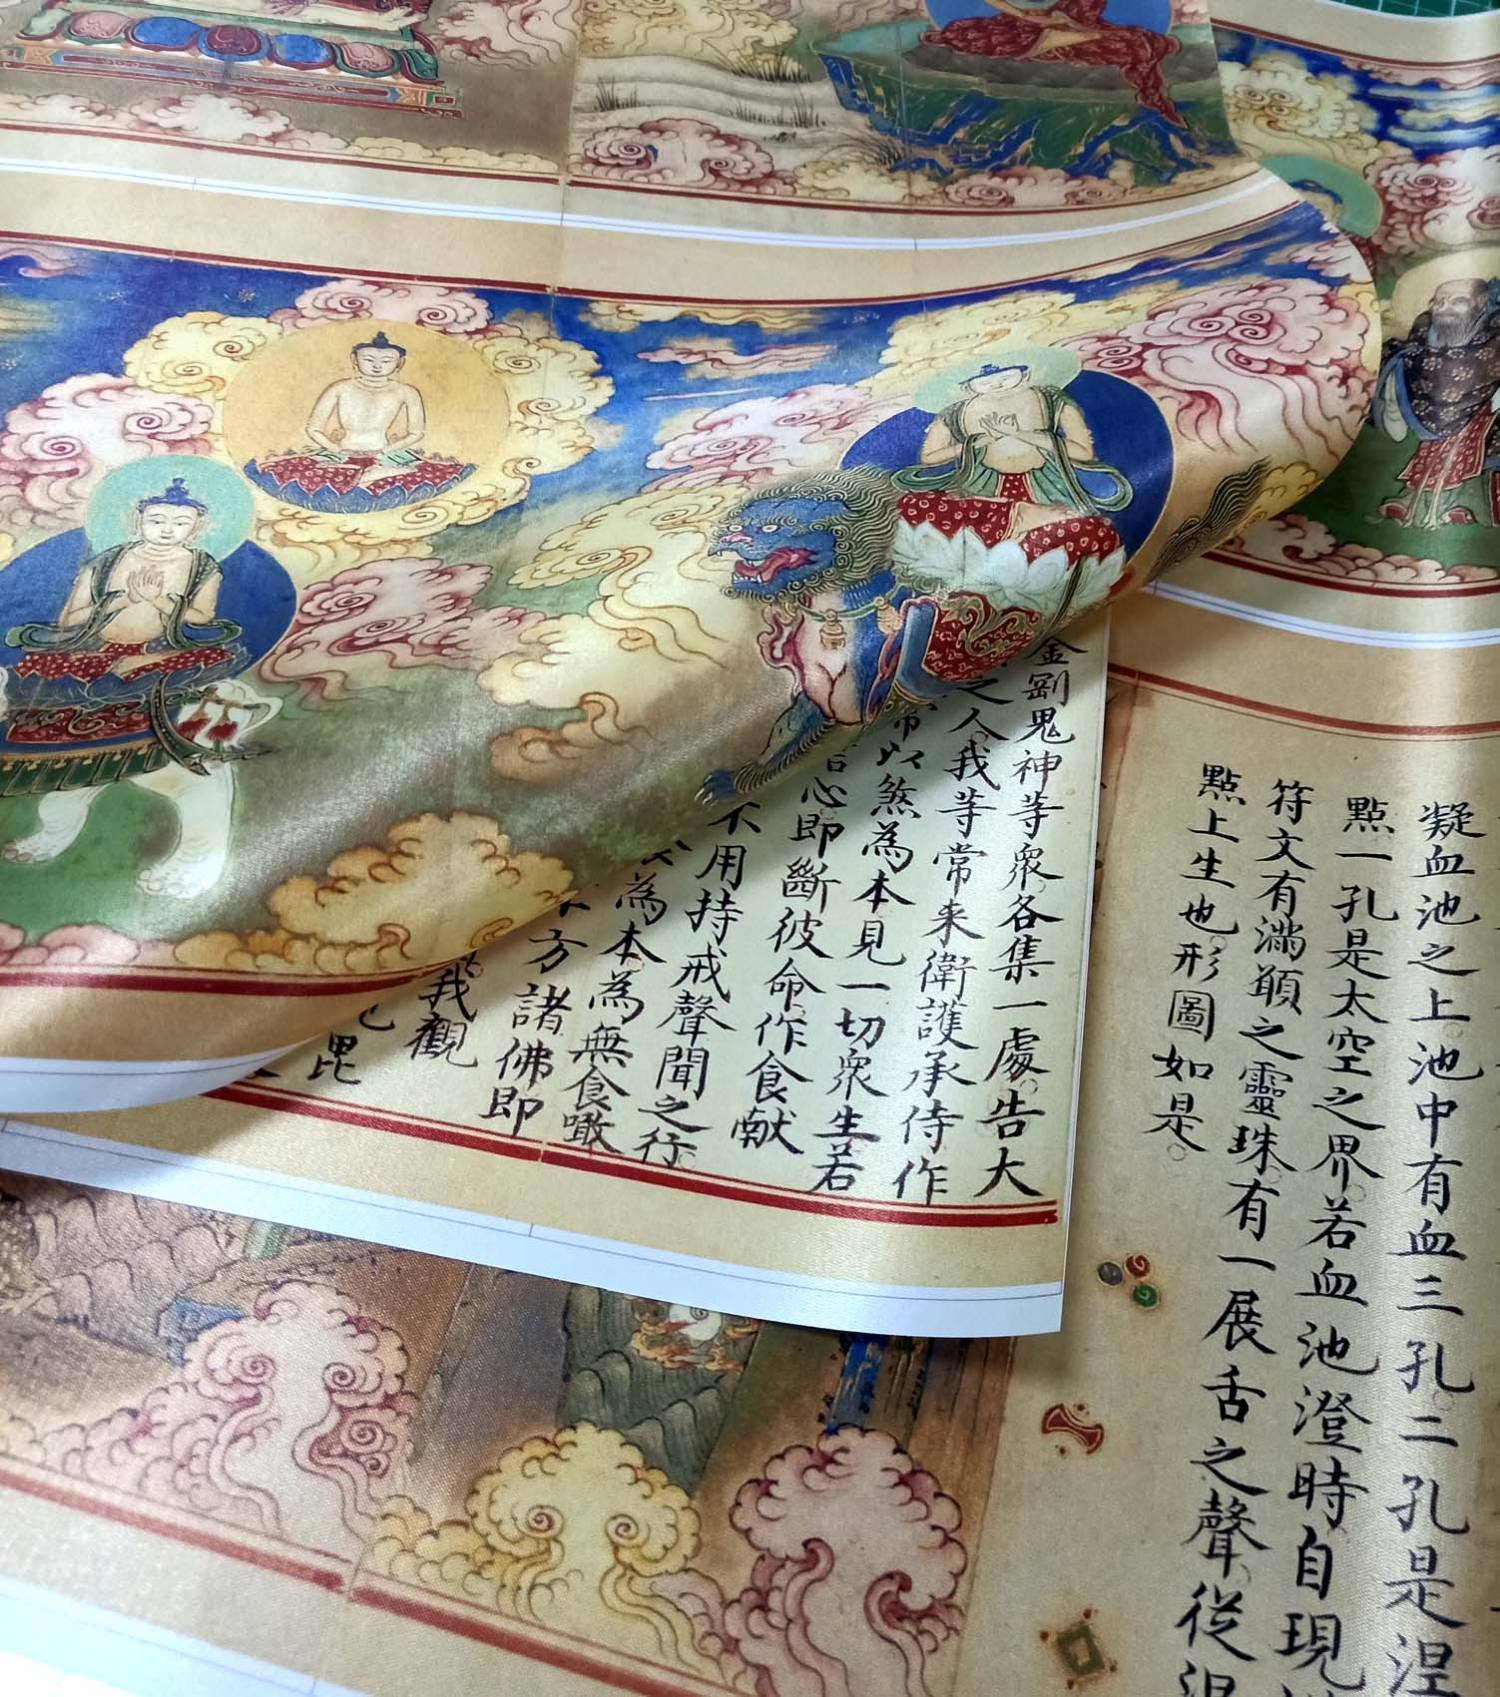 凝血池之上。池中有血三孔。二孔是涅
點一孔是太空之界。若血池澄時自現
符文有滿願之靈珠。有一展舌之聲。從涅
點上生也。形圖如是。
金剛鬼神等衆。各集一處。告大
之人。我等常来衛護承侍作
常以煞為本見一切衆生若
心即斷彼命作食献
不用持戒聲聞之行。
為本。為無食噉
方諸佛即
我觀
毘